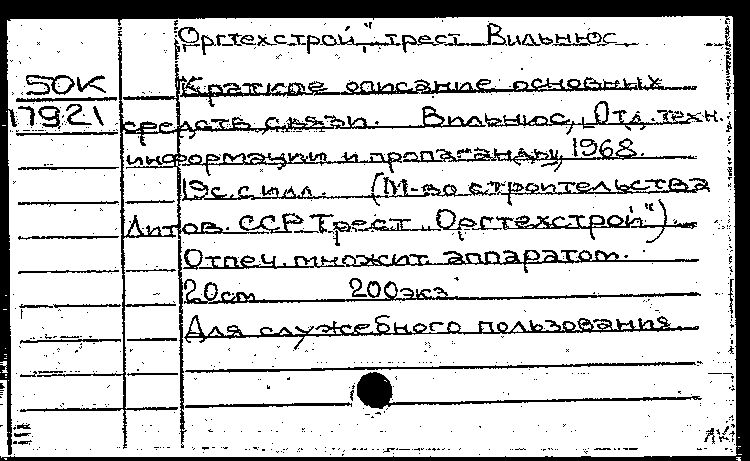 „Оргтехстрой", трест Вильнюс.
50К
Краткое описание основных
17921
средств связи. Вильнюс, Отд. техн.
информации и пропаганды, 1968.
19с. с илл. (М-во строительства
Литов. ССР Трест „Оргтехстрой").
Отпеч. множит. аппаратом.
20cm 200экз.
Для служебного пользования.